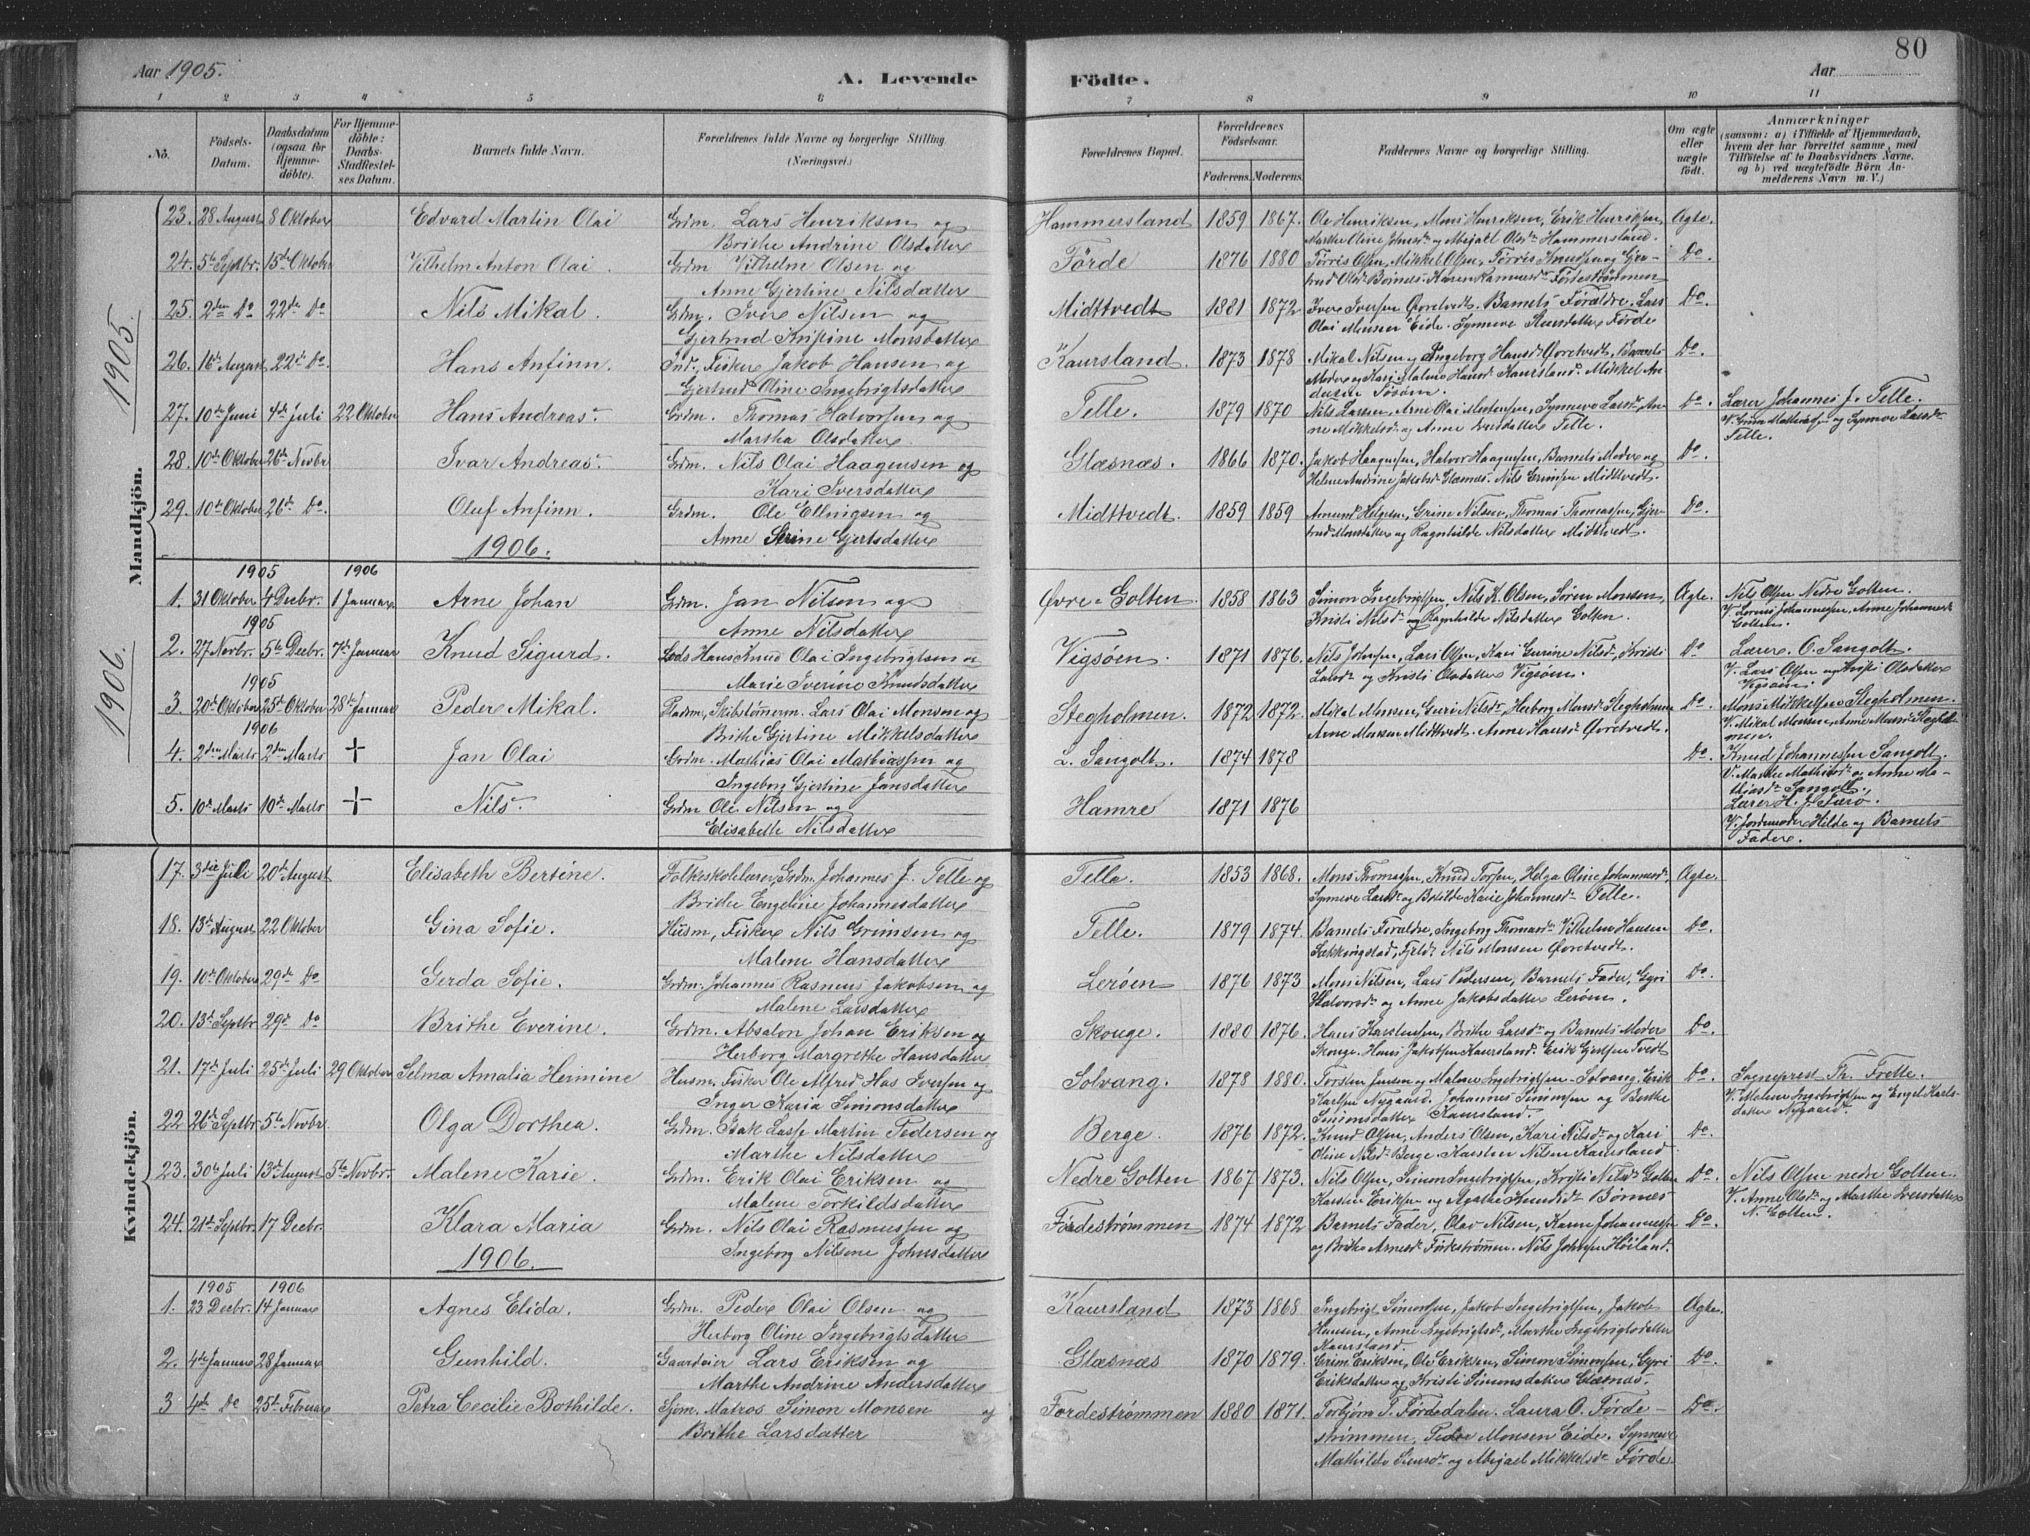 Aar 1905.
A. Levende
Födte.
80
Aar
1 2 3 4 5 6 7 8 9 10 11
No.
Födsels-Datum.
Daabsdatum (ogsaa for Hjemmedöbte).
For Hjemmedöbte: Daabs-Stadfæstelses Datum.
Barnets fulde Navn.
Forældrenes fulde Navne og borgerlige Stilling. (Næringsvei.)
Forældrenes Bopæl.
Forældrenes Födselsaar.
Faderens. Moderens.
Faddernes Navne og borgerlige Stilling.
Om ægte eller uægte födt.
Anmærkninger
(saasom: a) i Tilfælde af Hjemmedaab, hvem der har forrettet samme, med Tilföielse af to Daabsvidners Navne. og b) ved uægtefödte Börn Anmelderens Navn m. V.)
Mandkjön. 1905.
23. 28 August 8 Oktober Edvard Martin Olai Grdm. Lars Henriksen og Hammersland 1859 1867. Ole Henriksen, Mons Henriksen, Erik Henriksen, Ægte.
Brithe Andrine Olsdatter Marthe Oline Johnsdr og Abigael Olsdr Hammersland.
24. 5te Septbr. 15de Oktober Vilhelm Anton Olai. Grdm Vilhelm Olsen og Förde 1876 1880 Törris Olsen, Mikkel Olsen, Törris Knudsen og Gjer- Do.
Anne Gjertine Nilsdatter
25. 2den Do 22de Do Nils Mikal. Grdm. Iver Nilsen og Midttvedt 1881 1872 Iver Iversen Øvretvedt. Barnets Forældre. Lars Do.
Gjertrud Kristine Monsdatter Olai Monsen Eide. Synneve Förde
26. 16de August 22de Do Hans Anfinn. Ind. Fisker Jakob Hansen og Kaursland. 1873 1878 Mikal Nilsen og Ingeborg Hansdr Øvretvedt, Barnets Do
Gjertrud Oline Ingebrigtsdatter Moder og Kari Malene Hansdr Kaursland. Mikkel An-
27. 10de Juni 4de Juli 22 Oktober Hans Andreas. Grdm. Thomas Halvorsen og Telle. 1879 1870 Nils Larsen, Arne Olai Mortensen, Synneve Larsdr, An- Do. Lærer Johannes J. Telle.
Martha Olsdatter. ne Mikkelsdr og Anne Telle. og Synneve Larsdr
Telle.
28. 10de Oktober 26de Novbr Ivar Andreas. Grdm. Nils Olai Haagensen og Glæsnæs. 1866 1870. Jakob Haagensen, Halvor Haagensen, Barnets Moder og Do.
Kari Iversdatter Helene Andrine Jakobsdr Glæsnæs. Nils Grimsen Midttvedt.
29. 10de Oktober 26de Do. Oluf Anfinn. Grdm. Ole Ellingsen og Midttvedt. 1859 1859 Amund Helgesen, Grim Nilsen, Thomas Thomassen, Gjer- Do.
Anne Serine Gjertsdatter trud Monsdatter og Ragnhilde Nilsdatter Midttvedt.
1906.
1905 1906
1. 31 Oktober 4 Decbr. 1 Januar Arne Johan Grdm. Jan Nilsen og Øvre-Golten 1858 1863 Simon Ingebrigtsen, Nils K. Olsen, Sören Monsen, Ægte. Nils Olsen Nedre Golten.
Anne Nilsdatter Kristi Nilsdr og Ragnhilde Nilsdatter Golten. Anne Johannesdr
Golten.
1905
2. 27 Novbr. 5te Decbr. 7de Januar Knud Sigurd. Lods Hans Knud Olai Ingebrigtsen og Vigsøen. 1871 1876. Nils Johnsen, Lars Olsen, Kari Gurine Nilsdr, Kristi Do Lærer O. Sangolt.
Marie Iverine Knudsdatter Larsdr og Kristi Olsdatter Vigsøen. V. Lars Olsen og Kristi Olsdatter
Vigsøen.
1905
3. 20de Oktober 25de Oktober 28de Januar Peder Mikal. Skibstømrm. Lars Olai Monsen og Stegholmen. 1872 1872. Mikal Monsen, Guri Nilsdr, Herborg Monsdr Stegholmen Do. Mons Mikkelsen Stegholmen.
Brithe Gjertine Mikkelsdatter Arne Monsen Midttvedt. Anne Hansdr Øvretvedt. V. Mikal Monsen, Anne Monsdr Stegholmen.
1906.
1906
4. 2den Marts 2den Marts + Jan Olai Grdm. Mathias Olai Mathiassen og L. Sangolt. 1874 1878 Do. Knud Johannessen Sangolt.
Ingeborg Gjertine Jansdatter Sangolt.
5. 10de Marts 10de Marts + Nils. Grdm Ole Nilsen og Hamre 1871 1876 Lærer H. J. Færø.
Elisabeth Nilsdatter V. Jordemoder Hilde og Barnets
Fader.
Kvindekjön.
17. 3die Juli 20de August Elisabeth Bertine. Folkeskolelærer, Grdm. Johannes J. Telle og Telle. 1853 1868. Mons Thomassen, Knud Torsen, Helga Oline Johannesdr, Ægte.
Brithe Engeline Johannesdatter Synneve Larsdr og Botilde Karie Johannesdr Telle.
18. 13de August 22 Oktober Gina Sofie. Husm. Fisker Nils Grimsen og Telle. 1879 1874. Barnets Forældre, Ingeborg Thomasdr Vilhelm Hansen Do.
Malene Hansdatter Sækkingstad, Nils Monsen Øvretvedt.
19. 10de Oktober 29de Do Gerda Sofie. Grdm. Johannes Rasmus Jakobsen og Lerøen 1876 1873 Mons Nilsen, Lars Pedersen, Barnets Fader, Gyri Do.
Malene Larsdatter Halvorsdr og Anne Jakobsdatter Lerøen.
20. 13de Septbr. 29de Do Brithe Everine. Grdm. Absalon Johan Eriksen og Skouge. 1880 1876. Hans Karstensen, Brithe Larsdr og Barnets Moder Do
Herborg Margrethe Hansdatter Skouge. Hans Jakobsen Kaursland. Erik Gjertsen Tvedt
21. 17de Juli 25de Juli 29 Oktober Selma Amalia Hermine Husm. Fisker Ole Alfred Has Iversen og Solvang. 1878 1880. Torsten Jensen og Malene Ingebrigtsen Solvang, Erik Do. Sogneprest Th. Frette.
Inger Karia Simonsdatter Karlsen Nygaard. Johannes Simonsen og Berthe V. Malene Ingebrigtsen og Engel Karls-
Simonsdatter Kaursland. datter Nygaard.
22. 26de Septbr. 5te Novbr Olga Dorthea. Grdm. Isak Lasse Martin Pedersen og Berge. 1876 1872. Knud Olsen, Anders Olsen, Kari Nilsdr og Kari Do
Marthe Nilsdatter Oline Nilsdr Berge. Karsten Nilsen Kaursland
23. 30te Juli 13de August 5te Novbr. Malene Karie. Grdm. Erik Olai Eriksen og Nedre Golten 1867 1873. Nils Olsen, Simon Ingebrigtsen, Kristi Nilsdr Golten Do. Nils Olsen nedre Golten.
Malene Torkildsdatter Karsten Eriksen og Agathe Børnes V. Anne Olsdr og Marthe Iversdatter
N. Golten.
24. 21de Septbr. 17 Decbr. Klara Maria Grdm. Nils Olai Rasmussen og Fördeströmmen 1874 1872 Barnets Fader, Olav Nilsen, Karen Johannessen Do.
Ingeborg Nilsine Johnsdatter og Brithe Arnesdr Fördeströmmen. Nils Johnsen Höiland.
1906.
1905 1906
1. 23 Decbr. 14 Januar Agnes Elida. Grdm. Peder Olai Olsen og Kaursland 1873 1868 Ingebrigt Simonsen, Jakob Ingebrigtsen, Jakob Ægte
Herborg Oline Ingebrigtsdatter Hansen, Anne Ingebrigtsdr, Marthe Ingebrigtsdatter
Kaursland.
2. 4de Januar 28 Januar Gunhild. Gaardeier Lars Eriksen og Glæsnæs 1870 1879. Grim Eriksen, Ole Eriksen, Simon Simonsen, Gyri Do.
Marthe Andrine Andersdatter Eriksdatter og Kristi Simonsdatter Glæsnæs.
3 4de Do 25de Februar Petra Cecilie Bothilde. Sjöm. Matros Simon Monsen og Fördeströmmen 1880 1871. Torbjörn T. Fördedalen. Laura O. Förde- Do.
Brithe Larsdatter strömmen, Peder Monsen Eide. Synneve
Mathilde Simonsdr og Abigael Mikkelsdr Förde.